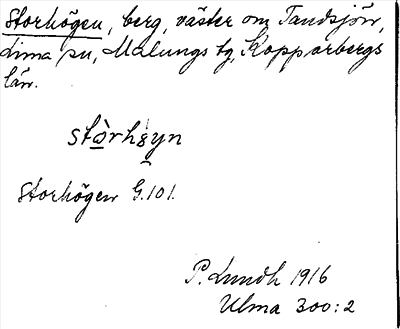 Storhögen, berg, väster om Tandsjön,
Lima sn, Malungs tg, Kopparbergs
län.
stòrhөyn
Storhögen G.101.
P. Lundh 1916
Ulma 300:2